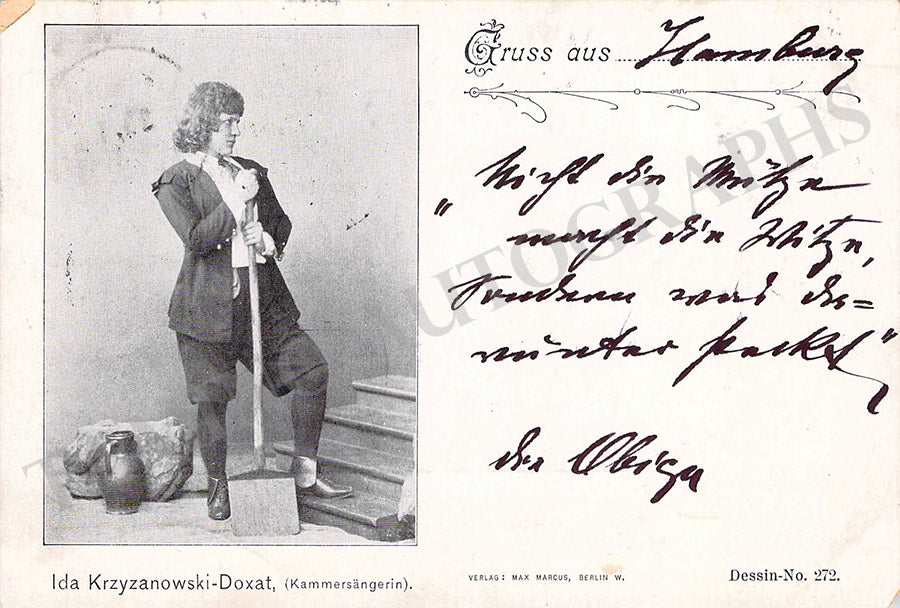 Gruss aus Hamburg
„Nicht die Mütze
macht die Witze,
Sondern was da=
runter steckt“
die Obige
Ida Krzyzanowski-Doxat, (Kammersängerin).
VERLAG: MAX MARCUS, BERLIN W.
Dessin-No. 272.
AUTOGRAPHS